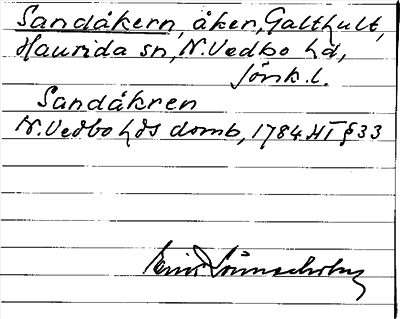 Sandåkern, åker, Galthult,
Haurida sn, N. Vedbo hd,
Jönk. l.
Sandåkren
N. Vedbo hds domb, 1784 HT § 33